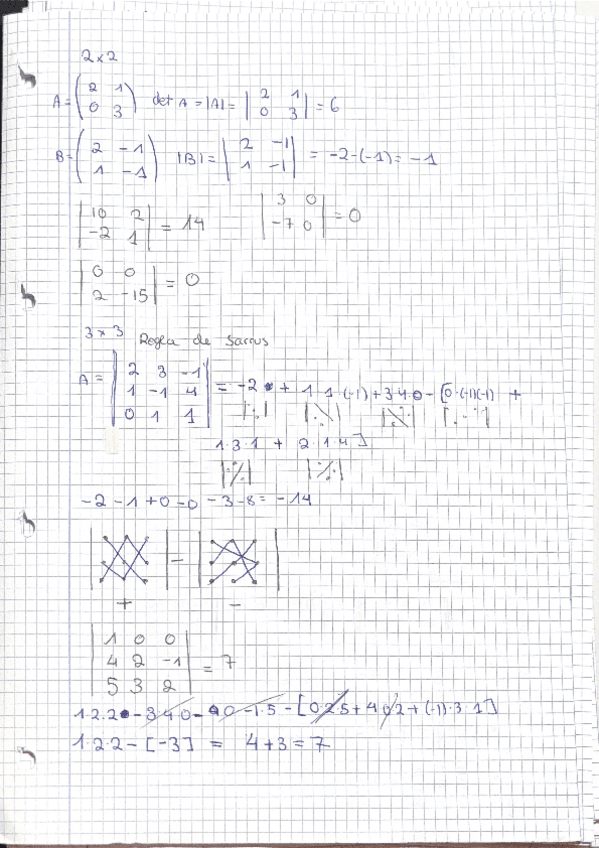 2x2
A = ( 2 1 / 0 3 ) det A = |A| = | 2 1 / 0 3 | = 6
B = ( 2 -1 / 1 -1 ) |B| = | 2 -1 / 1 -1 | = -2-(-1) = -1
| 10 2 / -2 1 | = 14 | 3 0 / -7 0 | = 0
| 0 0 / 2 -15 | = 0
3x3 Regla de Sarrus
A = | 2 3 -1 / 1 -1 4 / 0 1 1 | = -2 + 1·1·(-1) + 3·4·0 - [0·(-1)(-1) +
1·3·1 + 2·1·4]
-2 -1 +0 -0 -3 -8 = -14
| | - | |
+ -
| 1 0 0 / 4 2 -1 / 5 3 2 | = 7
1·2·2 - 3·4·0 - 0·-1·5 - [0·2·5 + 4·0·2 + (-1)·3·1]
1·2·2 - [-3] = 4+3 = 7